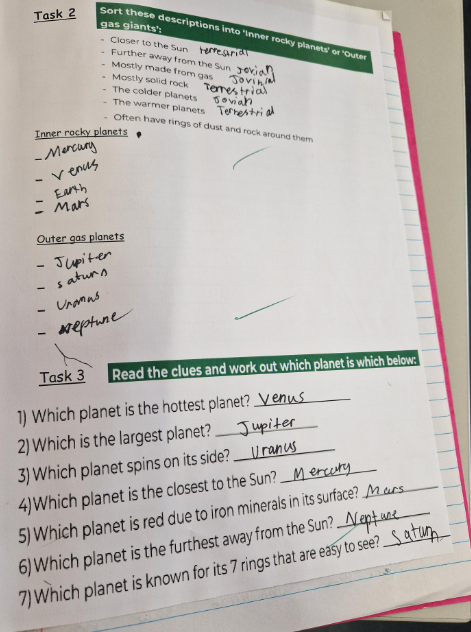 Task 2
Sort these descriptions into 'Inner rocky planets' or 'Outer gas giants':
- Closer to the Sun terrestrial
- Further away from the Sun Jovian
- Mostly made from gas
- Mostly solid rock Terrestrial
- The colder planets Jovian
- The warmer planets Terrestrial
- Often have rings of dust and rock around them
Inner rocky planets
- Mercury
- Venus
- Earth
- Mars
Outer gas planets
- Jupiter
- saturn
- Uranus
- neptune
Task 3
Read the clues and work out which planet is which below:
1) Which planet is the hottest planet? Venus
2) Which is the largest planet? Jupiter
3) Which planet spins on its side? Uranus
4) Which planet is the closest to the Sun? Mercury
5) Which planet is red due to iron minerals in its surface? Mars
6) Which planet is the furthest away from the Sun? Neptune
7) Which planet is known for its 7 rings that are easy to see? Saturn